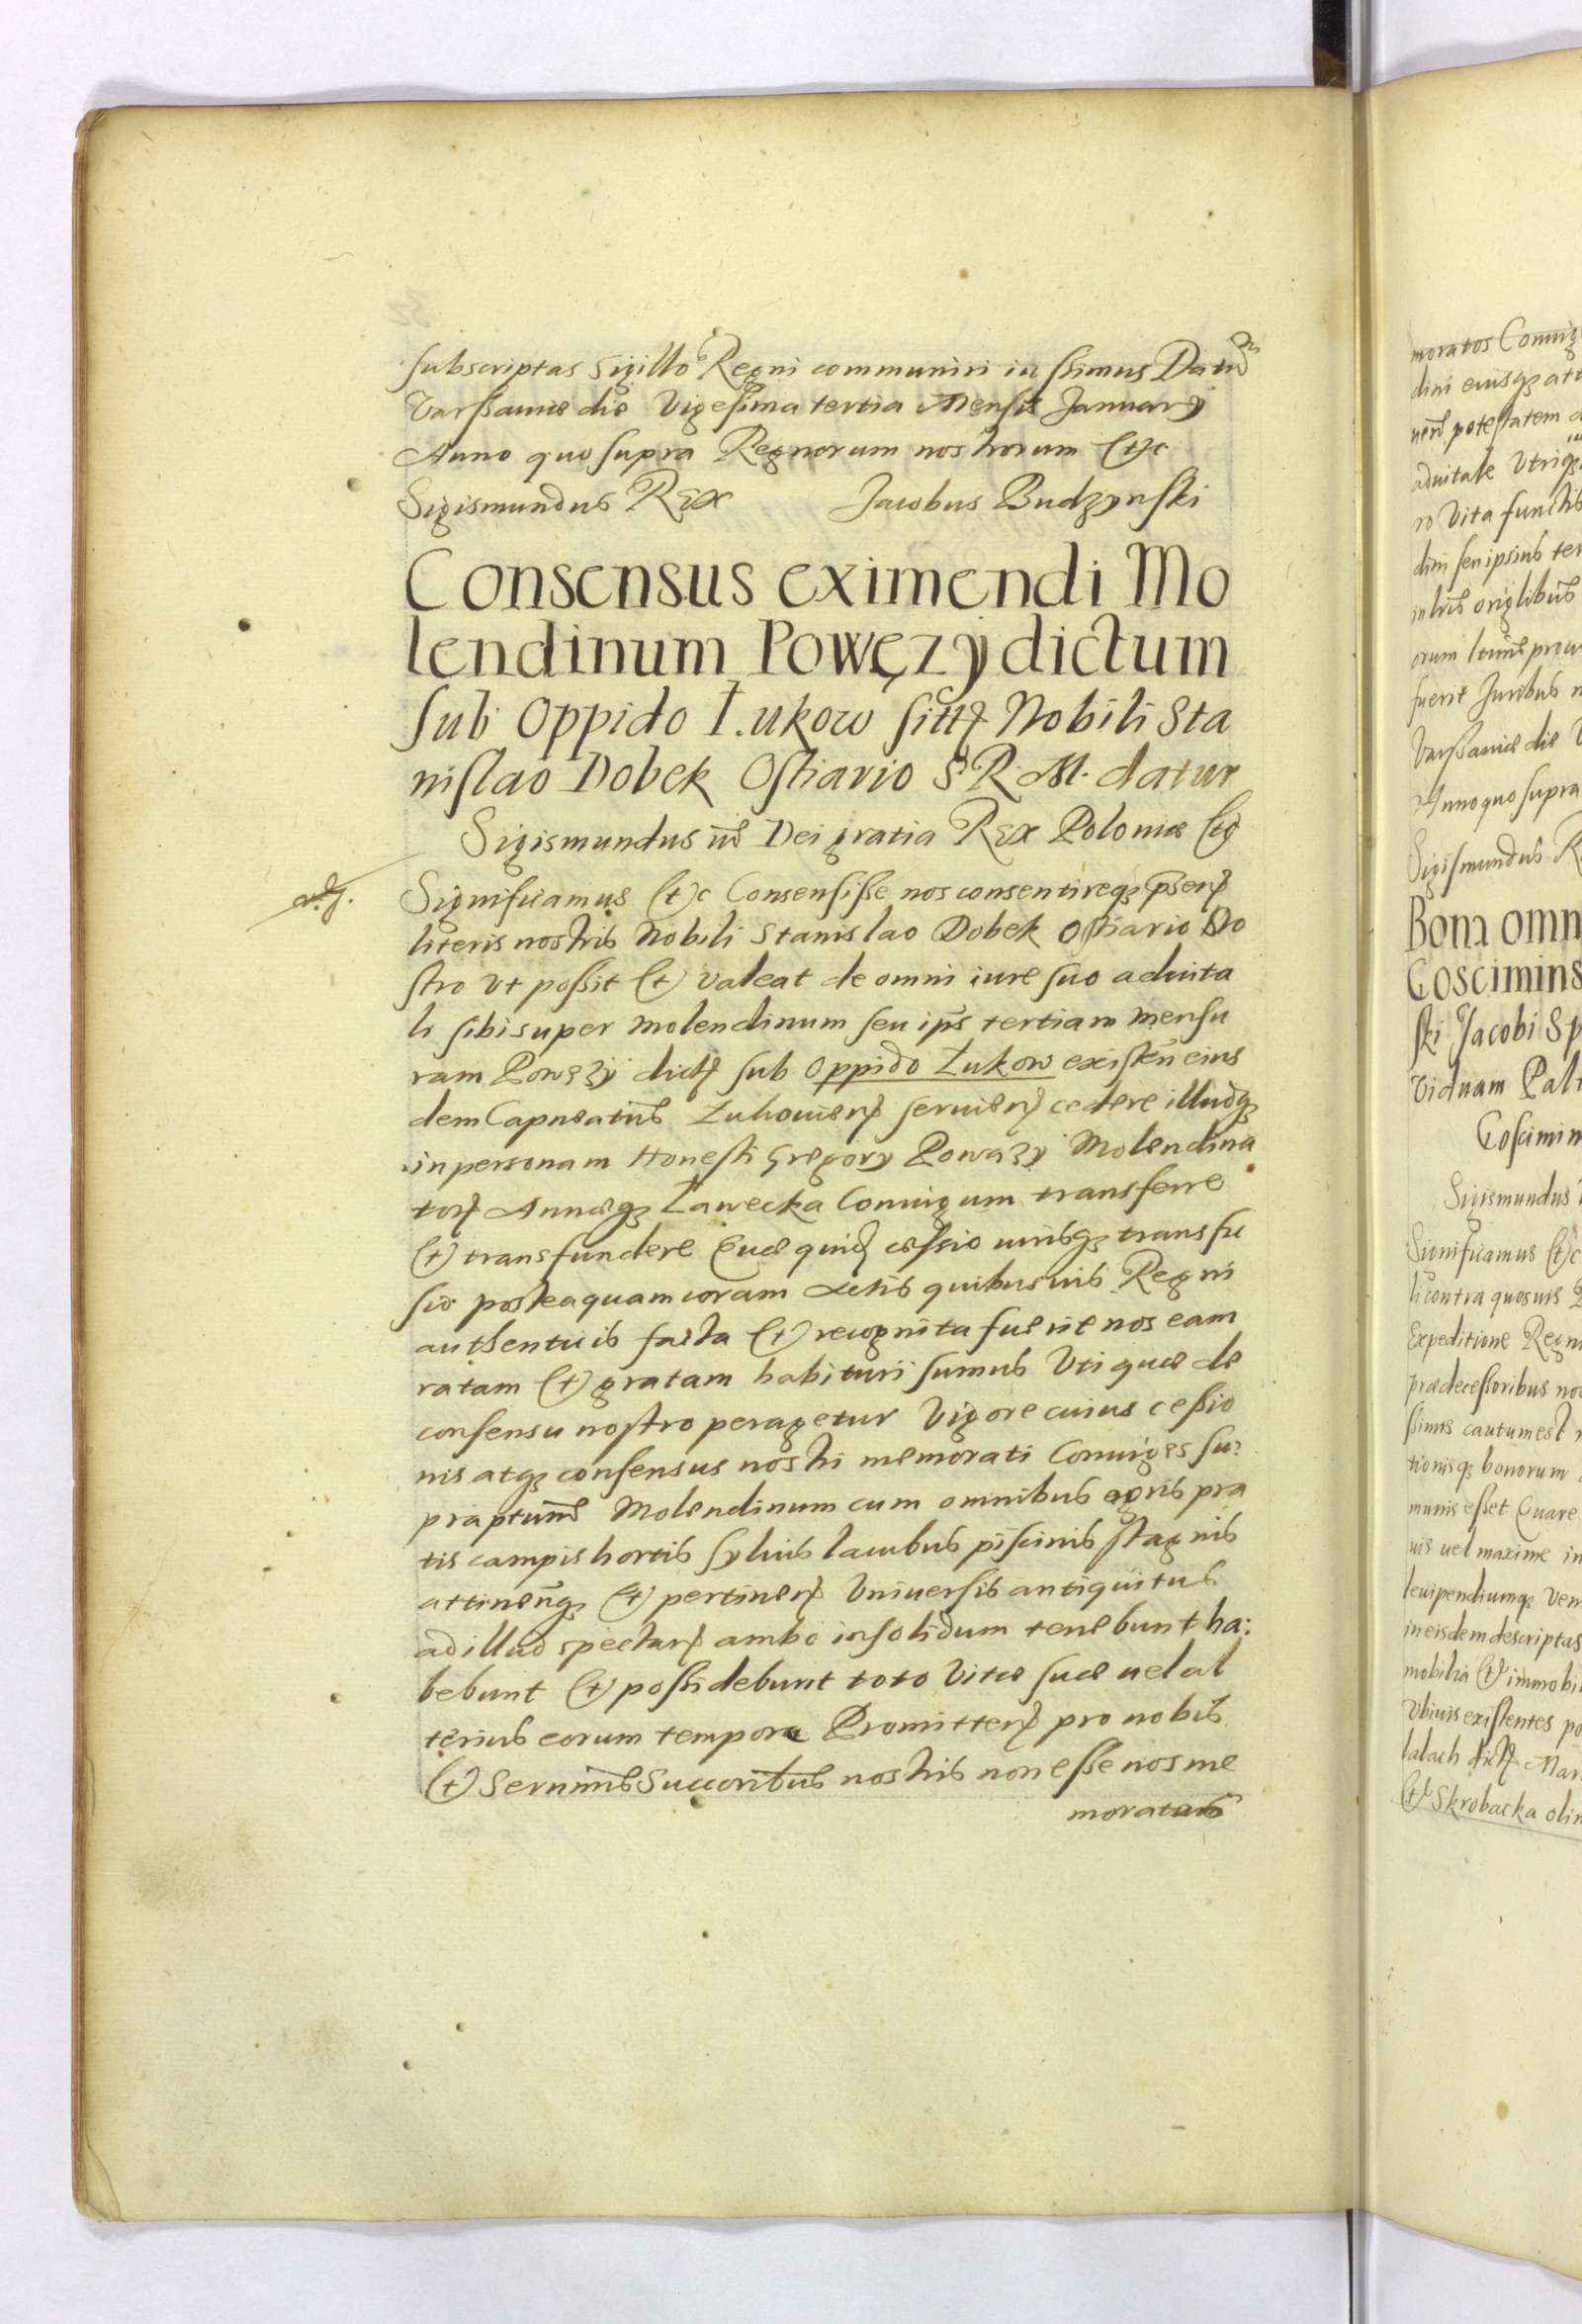 subscriptas Sigillo Regni communiri iussimus Datū
Varssaviæ die Vigesima tertia Mensis Januarÿ
Anno quo supra Regnorum nostrorum etc
Sigismundus Rex Jacobus Budzynski
Consensus eximendi Mo
lendinum Powęzÿ dictum
sub Oppido Łukow sitũ Nobili Sta
nislao Dobek Ostiario S R M. datur
Sigismundus Dei gratia Rex Poloniæ etc
Significamus etc Consensisse nos consentireqз pnseñ
literis nostris Nobili Stanislao Dobek Ostiario No
stro vt possit et valeat de omni iure suo advita
li sibi super Molendinum seu ips̄ tertiam mensu
ram Powęzÿ dictũ sub Oppido Łukow existeñ eius
dem Capneatus Lukovieñ servieñ cedere illudqз
in personam Honesti Gregorÿ Powązÿ Molendina
toris Annæqз Zawecka Coniugum transferre
et transfundere Quæ quid cessio iurisqз transfu
sio posteaquam coram Actis quibusuis Regni
authenticis facta et recognita fuerit nos eam
ratam et gratam habituri sumus Uti quæ de
consensu nostro peragetur Vigore cuius cessio
nis atqз consensus nostri memorati Coniuges su:
praptum̃ Molendinum cum omnibus agris pra
tis campis hortis syluis lacubus piscinis stagnis
attineñqз et pertineñ Vniuersis antiquitus
ad illud spectañ ambo insolidum tenebunt ha:
bebunt et possidebunt toto Vitæ suæ uel al
terius eorum tempore Promitteñ pro nobis
et Sernimis Succoribus nostris non esse nos me
moratos
moratos Coniug
dini eiusqз att
potestatem
aduitale Utriqз
ro Vita functis
dini seu ipsius ter
fuerit Juribus
Varssaviæ die
Anno quo supra
Sigismundus R
Bona omn
Goscimins
ski Jacobi Sp
Viduam Palt
Goscimin
Sigismundus
Significamus etc
li contra quosuis
Expeditione Regn
prædecessoribus nos
ssimis cautum est
tionisqз bonorum
munis esset Quare
uis uel maxime in
in eisdem descriptas
mobilia et immobil
Vbiuis existentes po
lalach dict Mar
et Skrobacka olim